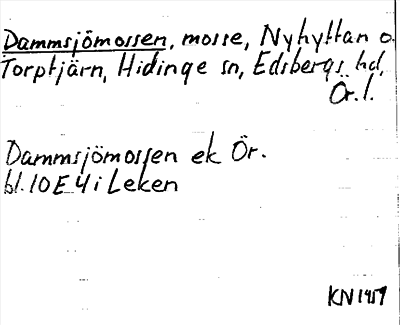 Dammsjömossen, mosse, Nyhyttan o.
Torptjärn, Hidinge sn, Edsbergs hd,
Ör. l.
Dammsjömossen ek Ör.
bl. 10 E 4 i Leken
KN 1959